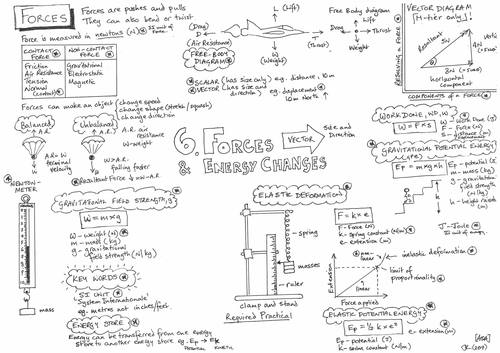 FORCES
Forces are pushes and pulls
They can also bend or twist
Force is measured in newtons (N)
SI unit of force
CONTACT FORCE
NON-CONTACT FORCE
Friction
Air Resistance
Tension
Normal (contact)
Gravitational
Electrostatic
Magnetic
Forces can make an object
change speed
change shape (stretch/squash)
change direction
Balanced
Unbalanced
A.R.
A.R.
W
W
A.R. air resistance
W-weight
AR=W
terminal velocity
W>A.R.
falling faster
Resultant Force ↓ =W-A.R
L (Lift)
(Drag)
D
(Air Resistance)
T
(Thrust)
W
(Weight)
FREE-BODY DIAGRAM
Free Body diagram
Lift
Drag
Thrust
Weight
SCALAR (has size only) eg. distance, 10m
VECTOR (has size and direction) eg. displacement, 10m North ↑
RESOLVING A FORCE
VECTOR DIAGRAM
(H-tier only!)
Resultant
5N
8N
horizontal component
COMPONENTS OF A FORCE
6. FORCES & ENERGY CHANGES
VECTOR
Size and Direction
WORK DONE, WD, W
W = F x s
W - Work Done (J)
F - Force (N)
s - distance (m)
GRAVITATIONAL POTENTIAL ENERGY (PE)
Ep = m x g x h
Ep - potential (J)
m - mass (kg)
g - gravitational field strength (N/kg)
h - height raised (m)
J - Joule
SI unit of energy
NEWTON-METER
mass
GRAVITATIONAL FIELD STRENGTH, g
W = m x g
W - weight (N)
m - mass (kg)
g - gravitational field strength (N/kg)
KEY WORDS
SI UNIT
'System Internationale'
eg. metres not inches/feet
ENERGY STORE
Energy can be transferred from one energy store to another energy store eg. Ep → Ek
POTENTIAL KINETIC
ELASTIC DEFORMATION
spring
masses
ruler
clamp and stand
Required Practical
F = k x e
F - Force (N)
k - spring constant (N/m)
e - extension (m)
non-linear
inelastic deformation
limit of proportionality
linear
Extension
Force applied
ELASTIC POTENTIAL ENERGY
Ep = ½ k x e²
e - extension (m)
Ep - potential (J)
k - spring constant (N/m)
(AQA)